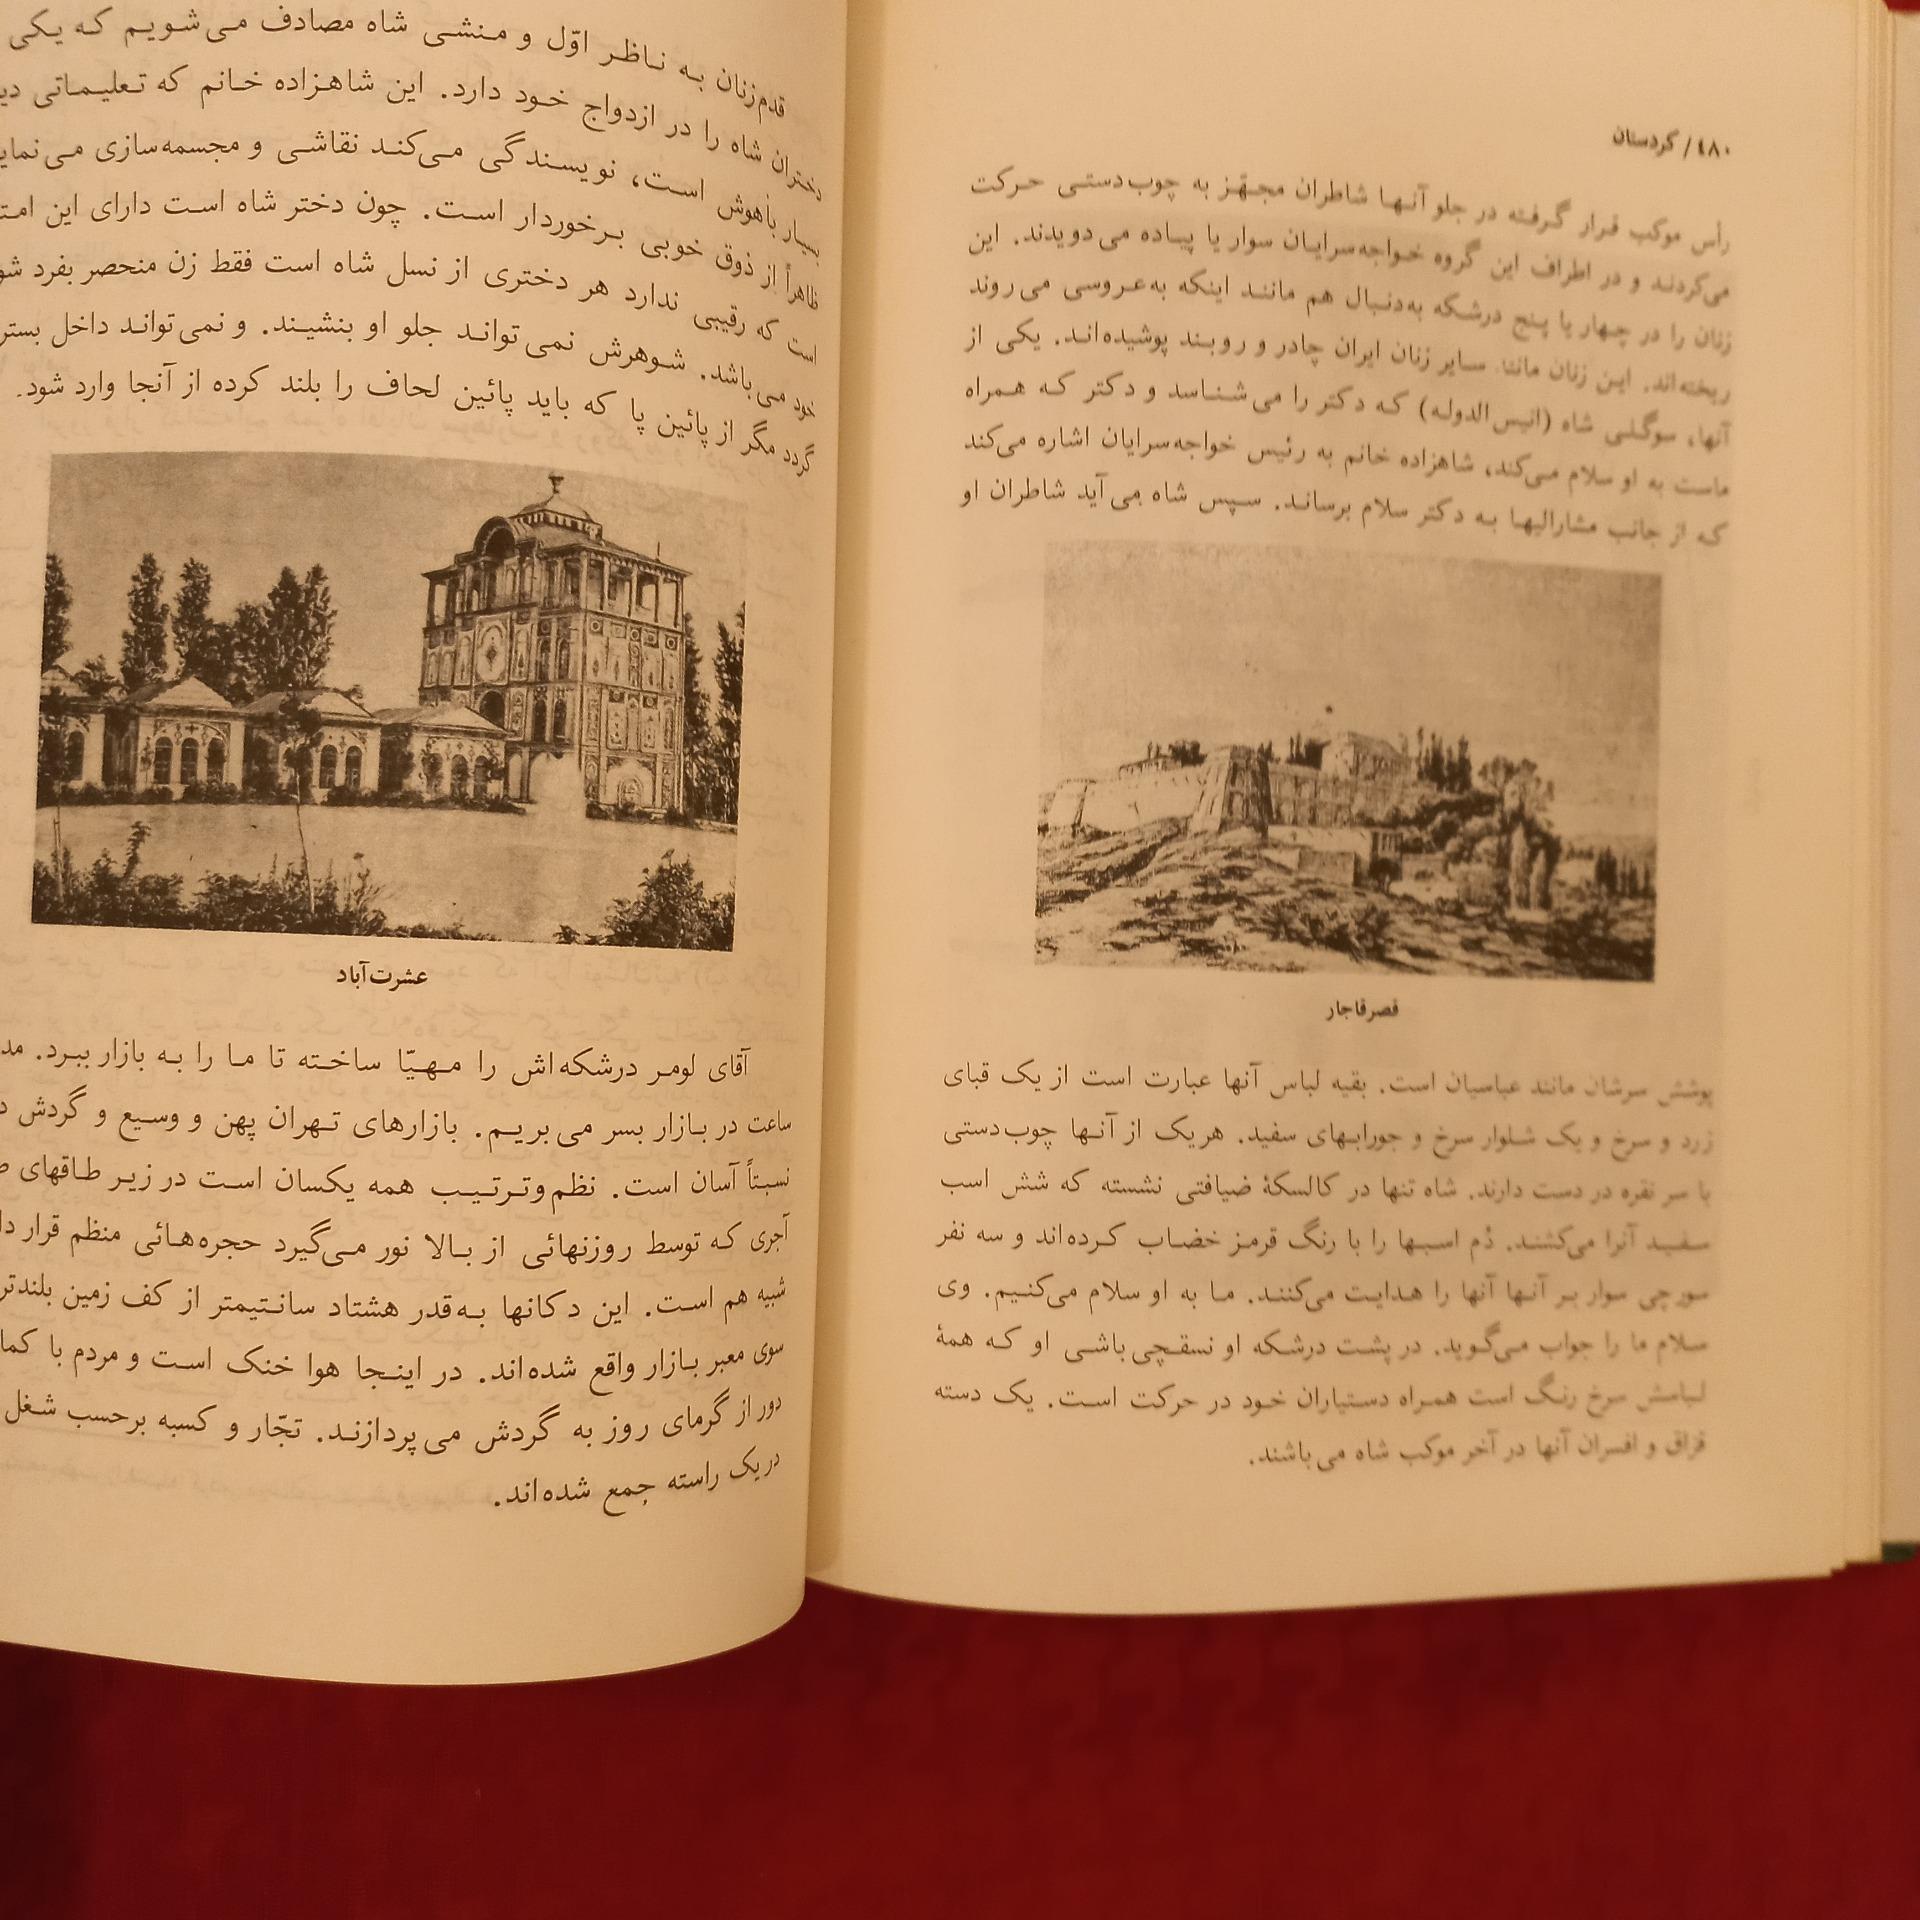 ٤٨٠/ کردستان
رأس موکب قرار گرفته در جلو آنها شاطران مجهّز به چوب‌دستی حرکت
می‌کردند و در اطراف این گروه خواجه‌سرایان سوار یا پیاده می‌دویدند. این
زنان را در چهار یا پنج درشکه به‌دنبال هم مانند اینکه به‌عروسی می‌روند
ریخته‌اند. این زنان مانند سایر زنان ایران چادر و روبند پوشیده‌اند. یکی از
آنها، سوگلی شاه (انیس‌الدوله) که دکتر را می‌شناسد و دکتر که همراه
ماست به او سلام می‌کند، شاهزاده خانم به رئیس خواجه‌سرایان اشاره می‌کند
که از جانب مشارالیها به دکتر سلام برساند. سپس شاه می‌آید شاطران او
قصرقاجار
پوشش سرشان مانند عباسیان است. بقیه لباس آنها عبارت است از یک قبای
زرد و سرخ و یک شلوار سرخ و جورابهای سفید. هریک از آنها چوب‌دستی
با سر نقره در دست دارند. شاه تنها در کالسکهٔ ضیافتی نشسته که شش اسب
سفید آنرا می‌کشند. دُم اسبها را با رنگ قرمز خضاب کرده‌اند و سه نفر
سورچی سوار بر آنها آنها را هدایت می‌کنند. ما به او سلام می‌کنیم. وی
سلام ما را جواب می‌گوید. در پشت درشکه او نسقچی‌باشی او که همهٔ
لباسش سرخ رنگ است همراه دستیاران خود در حرکت است. یک دسته
قزاق و افسران آنها در آخر موکب شاه می‌باشند.
قدم‌زنان به ناظر اوّل و منشی شاه مصادف می‌شویم که یکی
دختران شاه را در ازدواج خود دارد. این شاهزاده خانم که تعلیماتی
بسیار باهوش است، نویسندگی می‌کند نقاشی و مجسمه‌سازی
ظاهراً از ذوق خوبی برخوردار است. چون دختر شاه است دارای این
است که رقیبی ندارد هر دختری از نسل شاه است فقط زن منحصر بفرد
خود می‌باشد. شوهرش نمی‌تواند جلو او بنشیند. و نمی‌تواند داخل بستر
گردد مگر از پائین پا که باید پائین لحاف را بلند کرده از آنجا وارد شود.
عشرت‌آباد
آقای لومر درشکه‌اش را مهیّا ساخته تا ما را به بازار ببرد.
ساعت در بازار بسر می‌بریم. بازارهای تهران پهن و وسیع و گردش
نسبتاً آسان است. نظم‌وترتیب همه یکسان است در زیر طاقهای
آجری که توسط روزنهائی از بالا نور می‌گیرد حجره‌هائی منظم قرار
شبیه هم است. این دکانها به‌قدر هشتاد سانتیمتر از کف زمین بلندتر
سوی معبر بازار واقع شده‌اند. در اینجا هوا خنک است و مردم با
دور از گرمای روز به گردش می‌پردازند. تجّار و کسبه برحسب شغل
در یک راسته جمع شده‌اند.